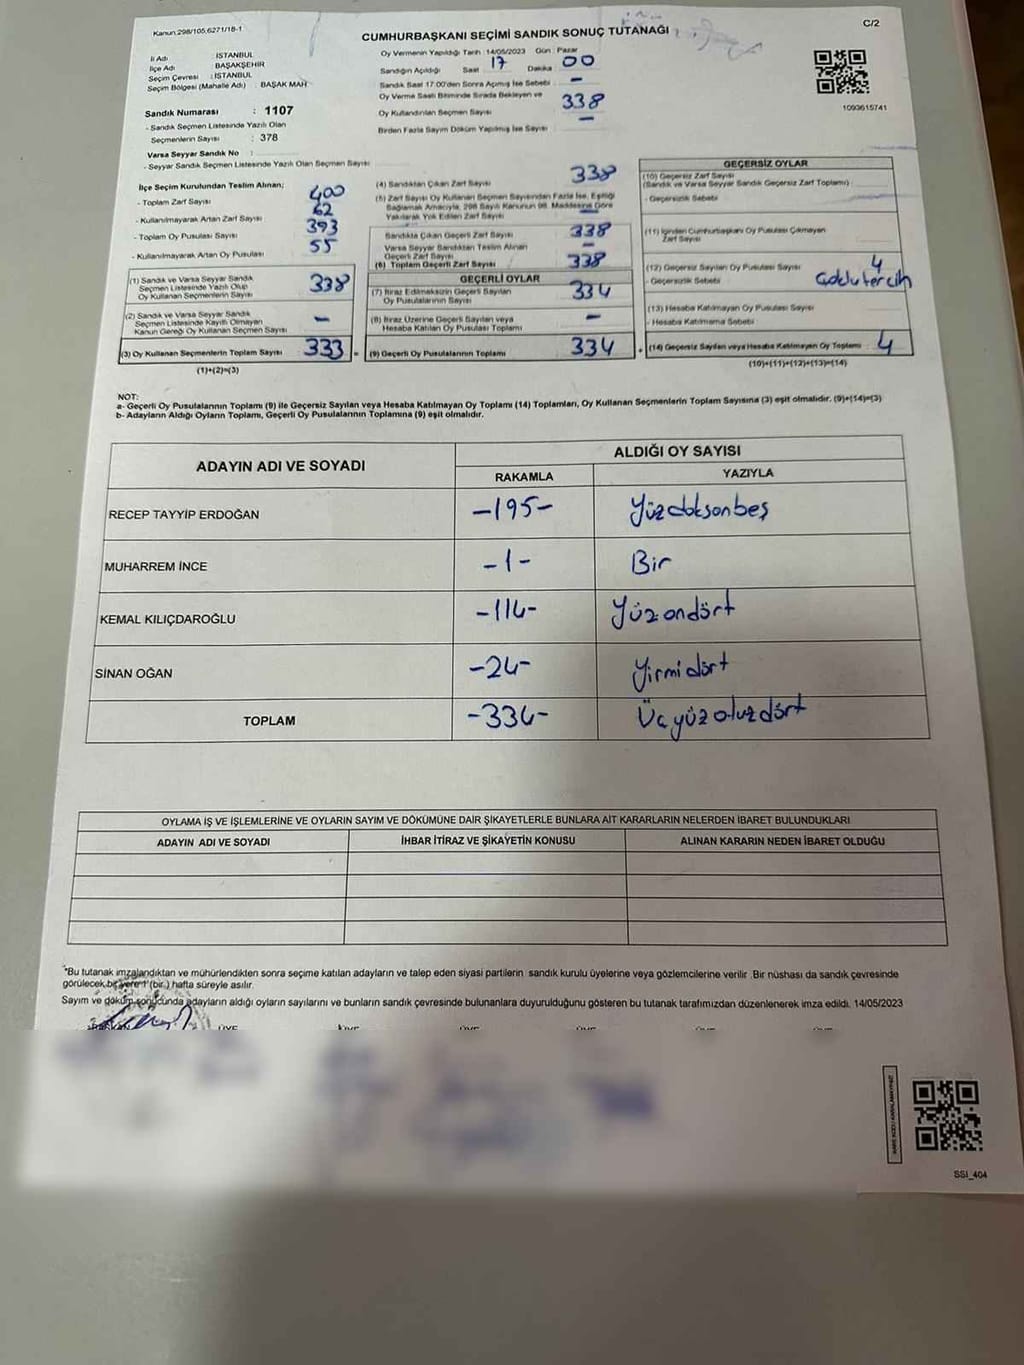 Kanun 298/105,6271/18-1
CUMHURBAŞKANI SEÇİMİ SANDIK SONUÇ TUTANAĞI
C/2
İl Adı : İSTANBUL
İlçe Adı : BAŞAKŞEHİR
Seçim Çevresi : İSTANBUL
Seçim Bölgesi (Mahalle Adı) : BAŞAK MAH
Sandık Numarası : 1107
- Sandık Seçmen Listesinde Yazılı Olan
Seçmenlerin Sayısı : 378
Varsa Seyyar Sandık No :
- Seyyar Sandık Seçmen Listesinde Yazılı Olan Seçmen Sayısı
Oy Vermenin Yapıldığı Tarih 14/05/2023 Gün : Pazar
Sandığın Açıldığı Saat 17 Dakika 00
Sandık Saat 17.00'den Sonra Açılmış İse Sebebi -
Oy Verme Saati Bitiminde Sırada Bekleyen ve
Oy Kullandırılan Seçmen Sayısı 338
Birden Fazla Sayım Döküm Yapılmış İse Sayısı -
1093615741
İlçe Seçim Kurulundan Teslim Alınan;
- Toplam Zarf Sayısı 400
- Kullanılmayarak Artan Zarf Sayısı 62
- Toplam Oy Pusulası Sayısı 393
- Kullanılmayarak Artan Oy Pusulası 55
(1) Sandık ve Varsa Seyyar Sandık
Seçmen Listesinde Yazılı Olup
Oy Kullanan Seçmenlerin Sayısı 338
(2) Sandık ve Varsa Seyyar Sandık
Seçmen Listesinde Kayıtlı Olmayan
Kanun Gereği Oy Kullanan Seçmen Sayısı -
(3) Oy Kullanan Seçmenlerin Toplam Sayısı 333 =
(1)+(2)=(3)
(4) Sandıktan Çıkan Zarf Sayısı 338
(5) Zarf Sayısı Oy Kullanan Seçmen Sayısından Fazla İse, Eşitliği
Sağlamak Amacıyla, 298 Sayılı Kanunun 98. Maddesine Göre
Yakılarak Yok Edilen Zarf Sayısı -
Sandıkta Çıkan Geçerli Zarf Sayısı 338
Varsa Seyyar Sandıktan Teslim Alınan
Geçerli Zarf Sayısı -
(6) Toplam Geçerli Zarf Sayısı 338
GEÇERLİ OYLAR
(7) İtiraz Edilmeksizin Geçerli Sayılan
Oy Pusulalarının Sayısı 334
(8) İtiraz Üzerine Geçerli Sayılan veya
Hesaba Katılan Oy Pusulası Toplamı -
(9) Geçerli Oy Pusulalarının Toplamı 334 +
GEÇERSİZ OYLAR
(10) Geçersiz Zarf Sayısı
(Sandık ve Varsa Seyyar Sandık Geçersiz Zarf Toplamı)
- Geçersizlik Sebebi
(11) İçinden Cumhurbaşkanı Oy Pusulası Çıkmayan
Zarf Sayısı
(12) Geçersiz Sayılan Oy Pusulası Sayısı 4
- Geçersizlik Sebebi Çoklu tercih
(13) Hesaba Katılmayan Oy Pusulası Sayısı
- Hesaba Katılmama Sebebi
(14) Geçersiz Sayılan veya Hesaba Katılmayan Oy Toplamı : 4
(10)+(11)+(12)+(13)=(14)
NOT:
a- Geçerli Oy Pusulalarının Toplamı (9) ile Geçersiz Sayılan veya Hesaba Katılmayan Oy Toplamı (14) Toplamları, Oy Kullanan Seçmenlerin Toplam Sayısına (3) eşit olmalıdır. (9)+(14)=(3)
b- Adayların Aldığı Oyların Toplamı, Geçerli Oy Pusulalarının Toplamına (9) eşit olmalıdır.
ADAYIN ADI VE SOYADI ALDIĞI OY SAYISI
RAKAMLA YAZIYLA
RECEP TAYYİP ERDOĞAN -195- Yüzdoksanbeş
MUHARREM İNCE -1- Bir
KEMAL KILIÇDAROĞLU -114- Yüzondört
SİNAN OĞAN -24- Yirmidört
TOPLAM -334- Üçyüzotuzdört
OYLAMA İŞ VE İŞLEMLERİNE VE OYLARIN SAYIM VE DÖKÜMÜNE DAİR ŞİKAYETLERLE BUNLARA AİT KARARLARIN NELERDEN İBARET BULUNDUKLARI
ADAYIN ADI VE SOYADI İHBAR İTİRAZ VE ŞİKAYETİN KONUSU ALINAN KARARIN NEDEN İBARET OLDUĞU
"Bu tutanak imzalandıktan ve mühürlendikten sonra seçime katılan adayların ve talep eden siyasi partilerin sandık kurulu üyelerine veya gözlemcilerine verilir .Bir nüshası da sandık çevresinde
görülecek bir yere 1 (bir ) hafta süreyle asılır.
Sayım ve döküm sonucunda adayların aldığı oyların sayılarını ve bunların sandık çevresinde bulunanlara duyurulduğunu gösteren bu tutanak tarafımızdan düzenlenerek imza edildi. 14/05/2023
BAŞKAN ÜYE ÜYE ÜYE ÜYE ÜYE
SSI_404